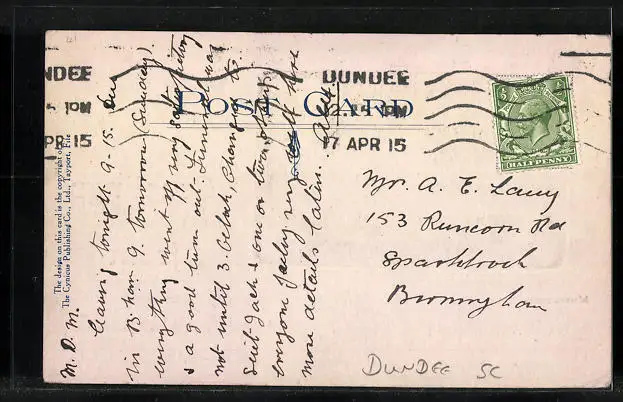 DUNDEE
10 PM
17 APR 15
NDEE
10 PM
PR 15
POST CARD
HALFPENNY
The design on this card is the copyright of
The Cynicus Publishing Co., Ltd., Tayport, Fife
M. D. M.
Leaving tonight 9-15. due
in B'ham 9 tomorrow (Sunday)
everything went off very satisfactory
& a good turn out. Funeral was
not until 3. Oclock, Changed
Jack & one or two
everyone very
more details later.
Mr. A. E.
153 Runcorn Rd
Sparkbrook
Birmingham
DUNDEE SC